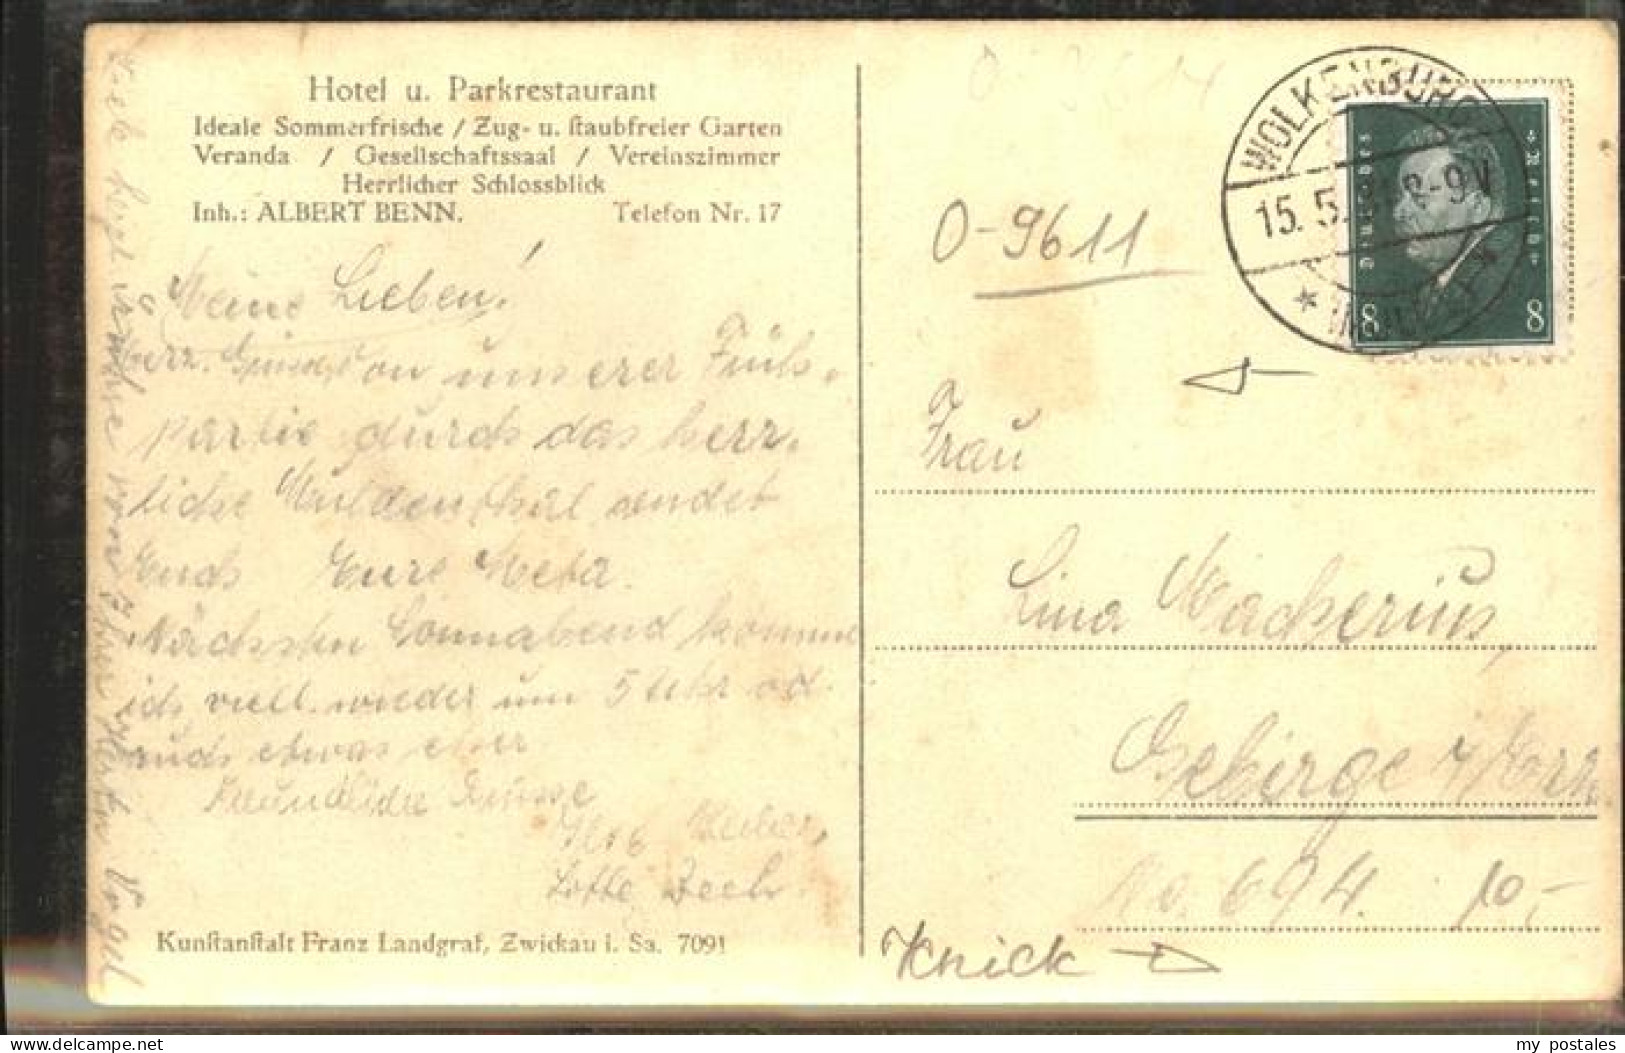 Hotel u. Parkrestaurant
Ideale Sommerfrische / Zug- u. staubfreier Garten
Veranda / Gesellschaftssaal / Vereinszimmer
Herrlicher Schlossblick
Inh.: ALBERT BENN. Telefon Nr. 17
Meine Lieben!
Herz. von unserer Früh-
partie durch das herr-
liche Muldenthal sendet
Euch Eure Meta.
Nächsten Sonnabend komme
ich viell. wieder um 5 Uhr od.
auch etwas eher
Freundliche Grüsse
Weber,
Lotte Zech.
Grüsse von Ihrer Vogel
Kunstanstalt Franz Landgraf, Zwickau i. Sa. 7091
WOLKENBURG
15. 5. 8-9 V
Deutsches Reich
8 8
0-9611
Frau
Lina Macherius,
No. 694. 10,-
Knick
my postales